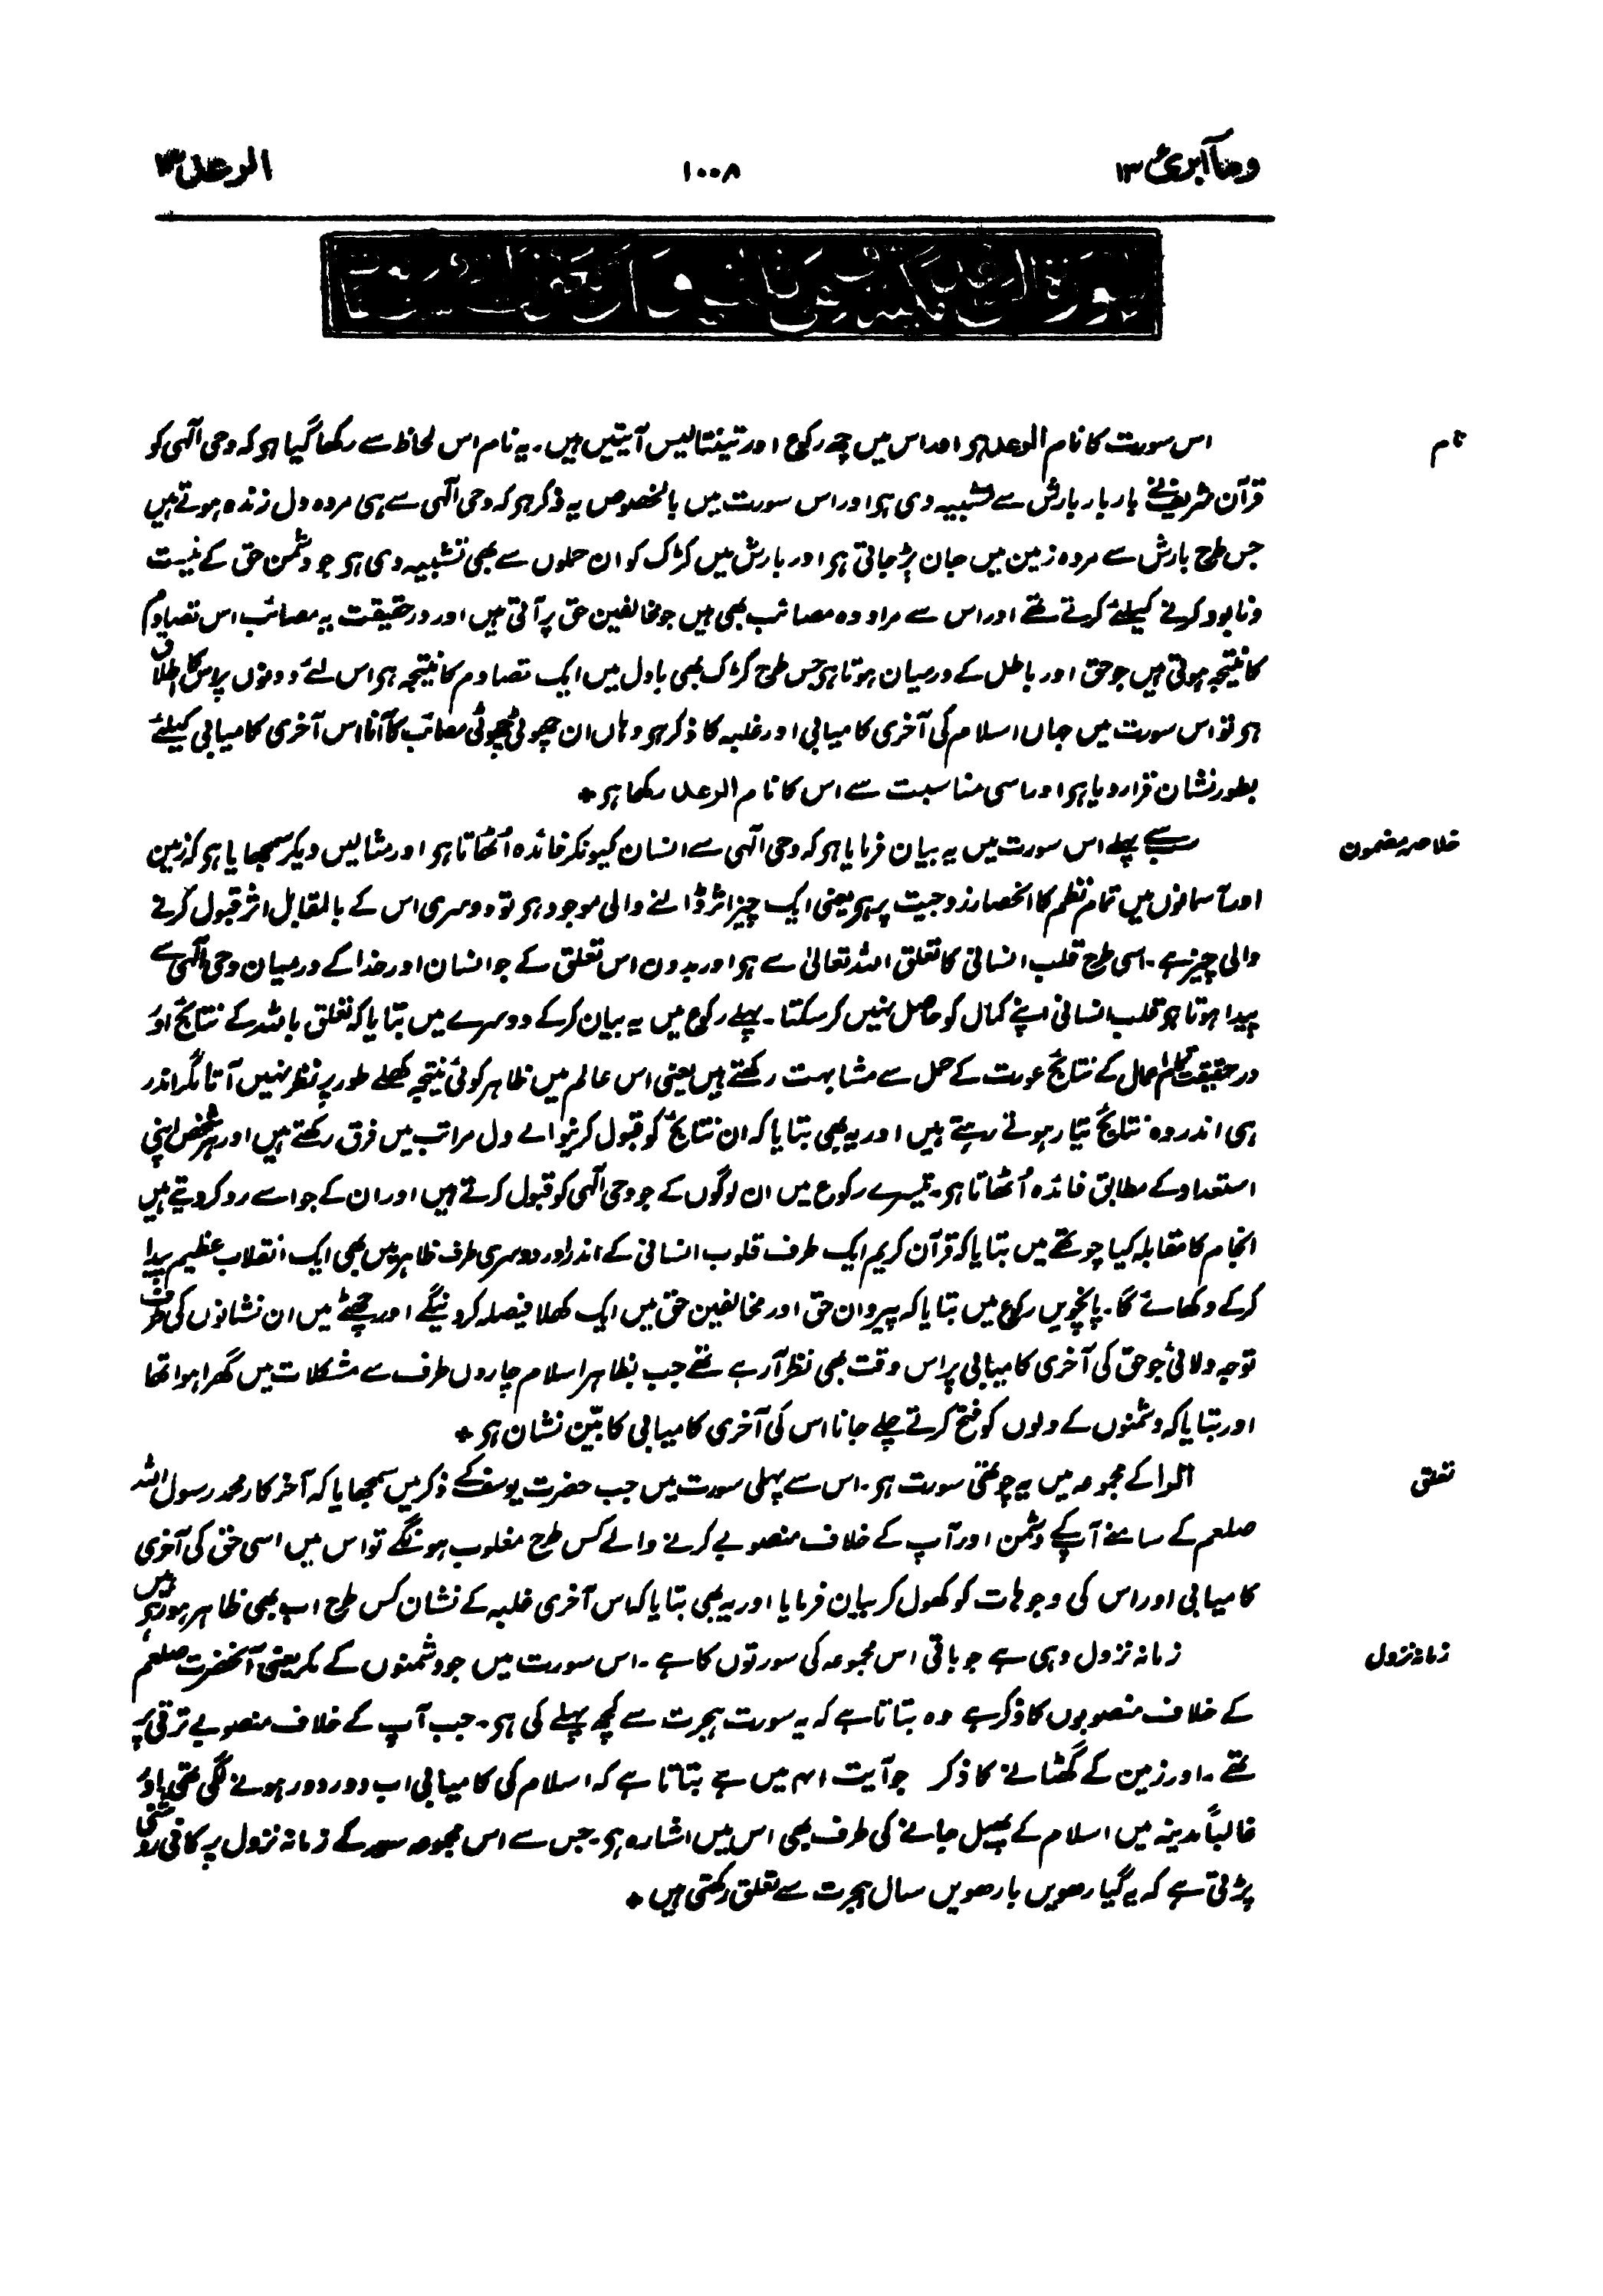 وما ابرئ ۱۳
۱۰۰۸
الرعد ۱۳
نام
اس سورت کا نام الرعد ہو اور اس میں چھ رکوع اور تینتالیس آیتیں ہیں۔ یہ نام اس لحاظ سے رکھا گیا ہو کہ وحی الٰہی کو
قرآن شریف نے بار بار بارش سے تشبیہ دی ہو اور اس سورت میں بالخصوص یہ ذکر ہو کہ وحی الٰہی سے ہی مردہ دل زندہ ہوتے ہیں
جس طرح بارش سے مردہ زمین میں جان پڑ جاتی ہو اور بارش میں کڑک کو ان حملوں سے بھی تشبیہ دی ہو جو دشمن حق کے نیست
و نابود کرنے کیلئے کرتے تھے اور اس سے مراد وہ مصائب بھی ہیں جو مخالفین حق پر آتی ہیں اور درحقیقت یہ مصائب اس تصادم
کا نتیجہ ہوتی ہیں جو حق اور باطل کے درمیان ہوتا ہو جس طرح کڑک بھی بادل میں ایک تصادم کا نتیجہ ہو اس لئے دونوں پر اس کا اطلاق
ہو تو اس سورت میں جہاں اسلام کی آخری کامیابی اور غلبہ کا ذکر ہو وہاں ان چھوٹی چھوٹی مصائب کا آنا اس آخری کامیابی کیلئے
بطور نشان قرار دیا ہو اور اسی مناسبت سے اس کا نام الرعد رکھا ہو ۞
خلاصہ مضمون
سب سے پہلے اس سورت میں یہ بیان فرمایا ہو کہ وحی الٰہی سے انسان کیونکر فائدہ اُٹھاتا ہو اور مثالیں دیکر سمجھایا ہو کہ زمین
اور آسمانوں میں تمام نظم کا انحصار زوجیت پر ہو یعنی ایک چیز اثر ڈالنے والی موجود ہو تو دوسری اس کے بالمقابل اثر قبول کرنے
والی چیز ہے۔ اسی طرح قلب انسانی کا تعلق اللہ تعالیٰ سے ہو اور بدون اس تعلق کے جو انسان اور خدا کے درمیان وحی الٰہی سے
پیدا ہوتا ہو قلب انسانی اپنے کمال کو حاصل نہیں کر سکتا۔ پہلے رکوع میں یہ بیان کرکے دوسرے میں بتایا کہ تعلق باللہ کے نتائج اور
درحقیقت کل اعمال کے نتائج عورت کے حمل سے مشابہت رکھتے ہیں یعنی اس عالم میں ظاہر کوئی نتیجہ کھلے طور پر نظر نہیں آتا مگر اندر
ہی اندر وہ نتائج تیار ہوتے رہتے ہیں اور یہ بھی بتایا کہ ان نتائج کو قبول کرنیوالے دل مراتب میں فرق رکھتے ہیں اور ہر شخص اپنی
استعداد کے مطابق فائدہ اُٹھاتا ہو۔ تیسرے رکوع میں ان لوگوں کے جو وحی الٰہی کو قبول کرتے ہیں اور ان کے جو اسے رد کر دیتے ہیں
انجام کا مقابلہ کیا چوتھے میں بتایا کہ قرآن کریم ایک طرف قلوب انسانی کے اندر اور دوسری طرف ظاہر میں بھی ایک انقلاب عظیم پیدا
کرکے دکھائے گا۔ پانچویں رکوع میں بتایا کہ پیروان حق اور مخالفین حق میں ایک کھلا فیصلہ کر دینگے اور چھٹے میں ان نشانوں کی طرف
توجہ دلائی جو حق کی آخری کامیابی پر اس وقت بھی نظر آرہے تھے جب بظاہر اسلام چاروں طرف سے مشکلات میں گھرا ہوا تھا
اور بتایا کہ دشمنوں کے دلوں کو فتح کرتے چلے جانا اس کی آخری کامیابی کا بیّن نشان ہو ۞
تعلق
الرا کے مجموعہ میں یہ چوتھی سورت ہو۔ اس سے پہلی سورت میں جب حضرت یوسف کے ذکر میں سمجھایا کہ آخر کار محمد رسول اللہ
صلعم کے سامنے آپ کے دشمن اور آپ کے خلاف منصوبے کرنے والے کس طرح مغلوب ہونگے تو اس میں اسی حق کی آخری
کامیابی اور اس کی وجوہات کو کھول کر بیان فرمایا اور یہ بھی بتایا کہ اس آخری غلبہ کے نشان کس طرح اب بھی ظاہر ہو رہے ہیں
زمانہ نزول
زمانہ نزول وہی ہے جو باقی اس مجموعہ کی سورتوں کا ہے۔ اس سورت میں جو دشمنوں کے مکر یعنی آنحضرت صلعم
کے خلاف منصوبوں کا ذکر ہے وہ بتاتا ہے کہ یہ سورت ہجرت سے کچھ پہلے کی ہو۔ جب آپ کے خلاف منصوبے ترقی پر
تھے۔ اور زمین کے گھٹانے کا ذکر جو آیت ۴۱ میں ہے بتاتا ہے کہ اسلام کی کامیابی اب دور دور ہونے لگی تھی اور
غالباً مدینہ میں اسلام کے پھیل جانے کی طرف بھی اس میں اشارہ ہو۔ جس سے اس مجموعہ سور کے زمانہ نزول پر کافی روشنی
پڑتی ہے کہ یہ گیارھویں بارھویں سال ہجرت سے تعلق رکھتی ہیں ۞